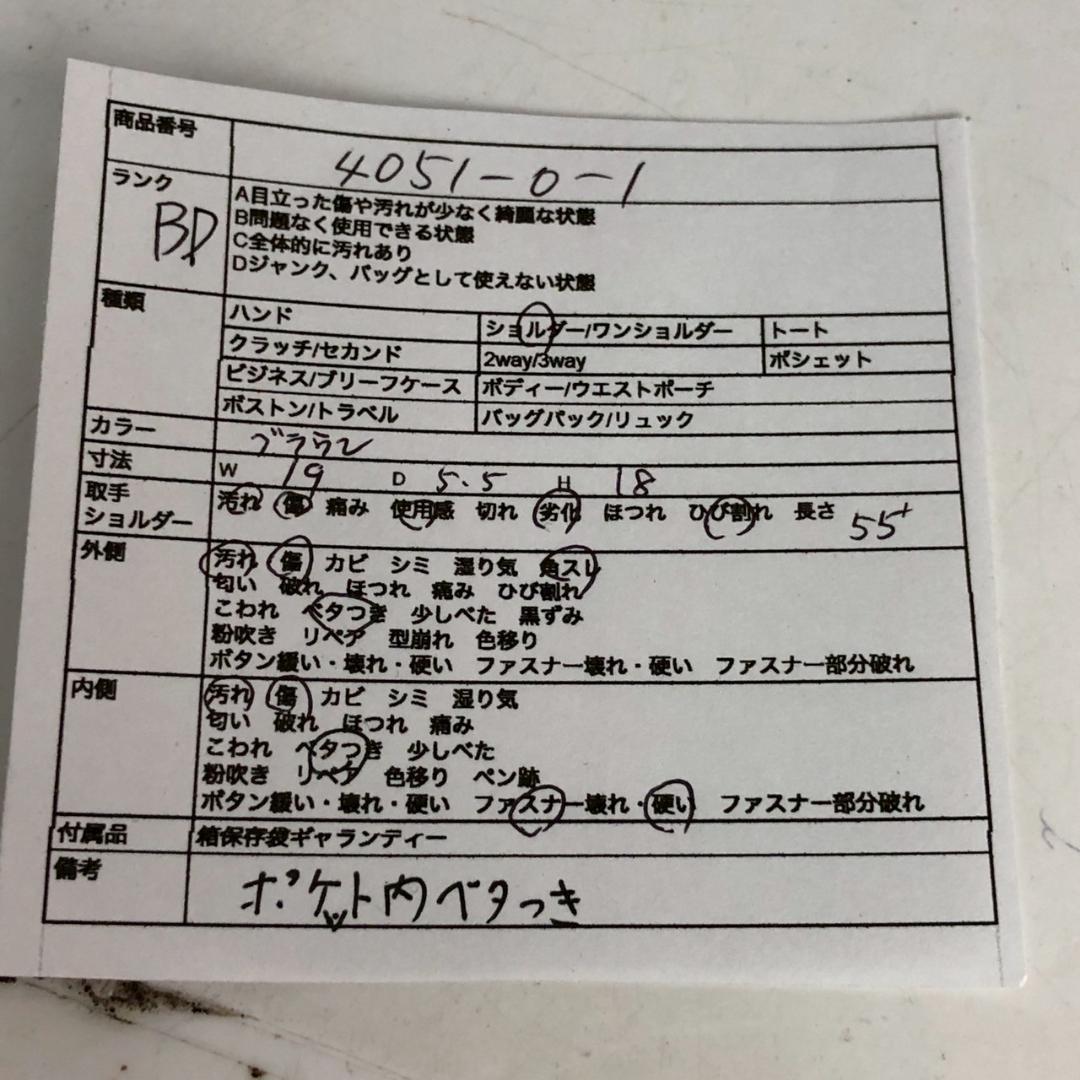 商品番号 4051-0-1
ランク BD
A目立った傷や汚れが少なく綺麗な状態
B問題なく使用できる状態
C全体的に汚れあり
Dジャンク、バッグとして使えない状態
種類 ハンド ショルダー/ワンショルダー トート
クラッチ/セカンド 2way/3way ポシェット
ビジネス/ブリーフケース ボディー/ウエストポーチ
ボストン/トラベル バッグパック/リュック
カラー ブラウン
寸法 W 19 D 5.5 H 18
取手 汚れ 傷 痛み 使用感 切れ 劣化 ほつれ ひび割れ 長さ 55+
ショルダー
外側 汚れ 傷 カビ シミ 湿り気 角スレ
匂い 破れ ほつれ 痛み ひび割れ
こわれ ベタつき 少しべた 黒ずみ
粉吹き リペア 型崩れ 色移り
ボタン緩い・壊れ・硬い ファスナー壊れ・硬い ファスナー部分破れ
内側 汚れ 傷 カビ シミ 湿り気
匂い 破れ ほつれ 痛み
こわれ ベタつき 少しべた
粉吹き リペア 色移り ペン跡
ボタン緩い・壊れ・硬い ファスナー壊れ・硬い ファスナー部分破れ
付属品 箱保存袋ギャランティー
備考 ポケット内ベタつき